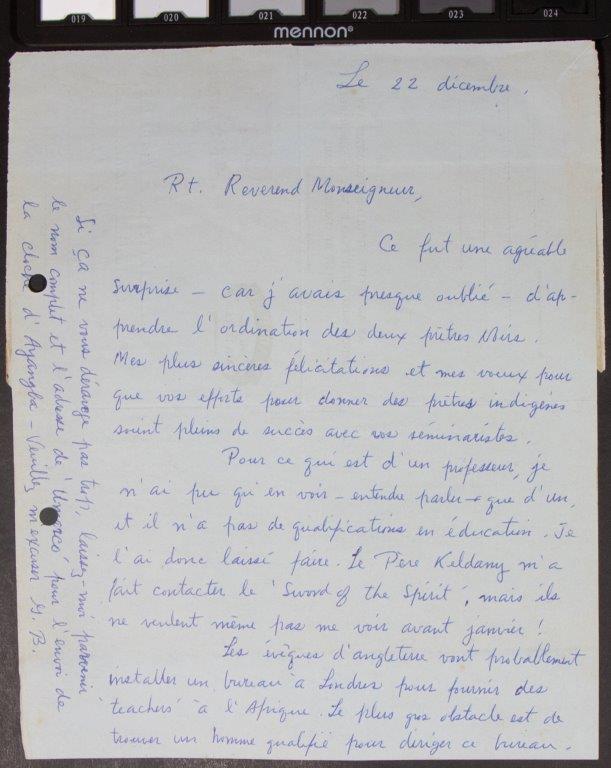 019 020 021 022 023 024
mennon®
Le 22 décembre.
Rt. Reverend Monseigneur,
Ce fut une agréable
surprise – car j'avais presque oublié – d'ap-
prendre l'ordination des deux prêtres Noirs.
Mes plus sincères félicitations et mes voeux pour
que vos efforts pour donner des prêtres indigènes
soient pleins de succès avec vos séminaristes.
Pour ce qui est d'un professeur, je
n'ai pu qu'en voir – entendre parler – que d'un,
et il n'a pas de qualifications en éducation. Je
l'ai donc laissé faire. Le Père Keldany m'a
fait contacter le 'Sword of the Spirit', mais ils
ne veulent même pas me voir avant janvier !
Les évêques d'angleterre vont probablement
installer un bureau à Londres pour fournir des
'teachers' à l'Afrique. Le plus gros obstacle est de
trouver un homme qualifié pour diriger ce bureau.
Si ça ne vous dérange pas trop, laissez-moi parvenir
le nom complet et l'adresse de pour l'envoi de
la cloche d'Ayangba – Veuillez m'excuser G. B.